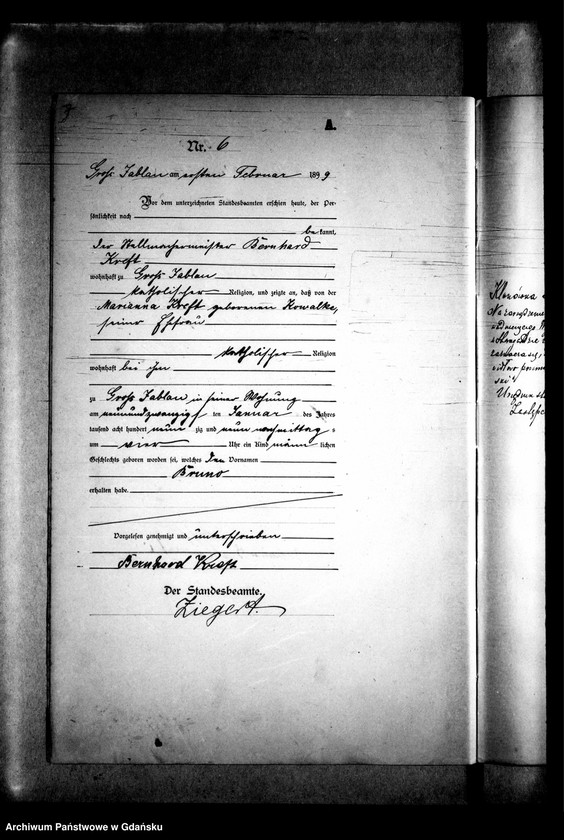 A.
Nr. 6
Gross Jablau am ersten Februar 1899
Vor dem unterzeichneten Standesbeamten erschien heute, der Per-
sönlichkeit nach
bekannt,
der Stellmachermeister Bernhard
Kreft
wohnhaft zu Gross Jablau
katholischer Religion, und zeigte an, daß von der
Marianna Kreft geborenen Kowalke,
seiner Ehefrau
katholischer Religion
wohnhaft bei ihm
zu Gross Jablau in seiner Wohnung
am neunundzwanzigsten Januar des Jahres
tausend acht hundert neunzig und neun nachmittag
um vier Uhr ein Kind männlichen
Geschlechts geboren worden sei, welches den Vornamen
Bruno
erhalten habe.
Vorgelesen genehmigt und unterschrieben
Bernhard Kreft
Der Standesbeamte.
Ziegert.
Archiwum Państwowe w Gdańsku